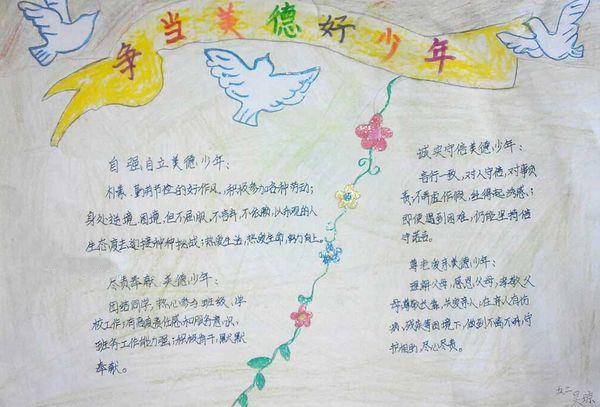 争当美德好少年
自强自立美德少年：
朴素、勤劳节俭的好作风，积极参加各种劳动；
身处逆境、困境，但不屈服、不言弃、不依赖，以乐观的人
生态度去迎接种种挑战；热爱生活，热爱生命，努力向上。
尽责奉献美德少年：
团结同学，热心参与班级、学
校工作；有高度责任感和服务意识，
班务工作能力强；积极肯干，默默
奉献。
诚实守信美德少年：
言行一致，对人守信，对事负
责；不弄虚作假，经得起诱惑；
即使遇到困难，仍能坚持信
守诺言。
尊老爱亲美德少年：
理解父母，感恩父母，孝敬父
母尊敬长辈，关爱亲人；在亲人有伤
病、残疾等困境下，做到不离不弃，守
护相助，尽心尽责。
五二
吴琼